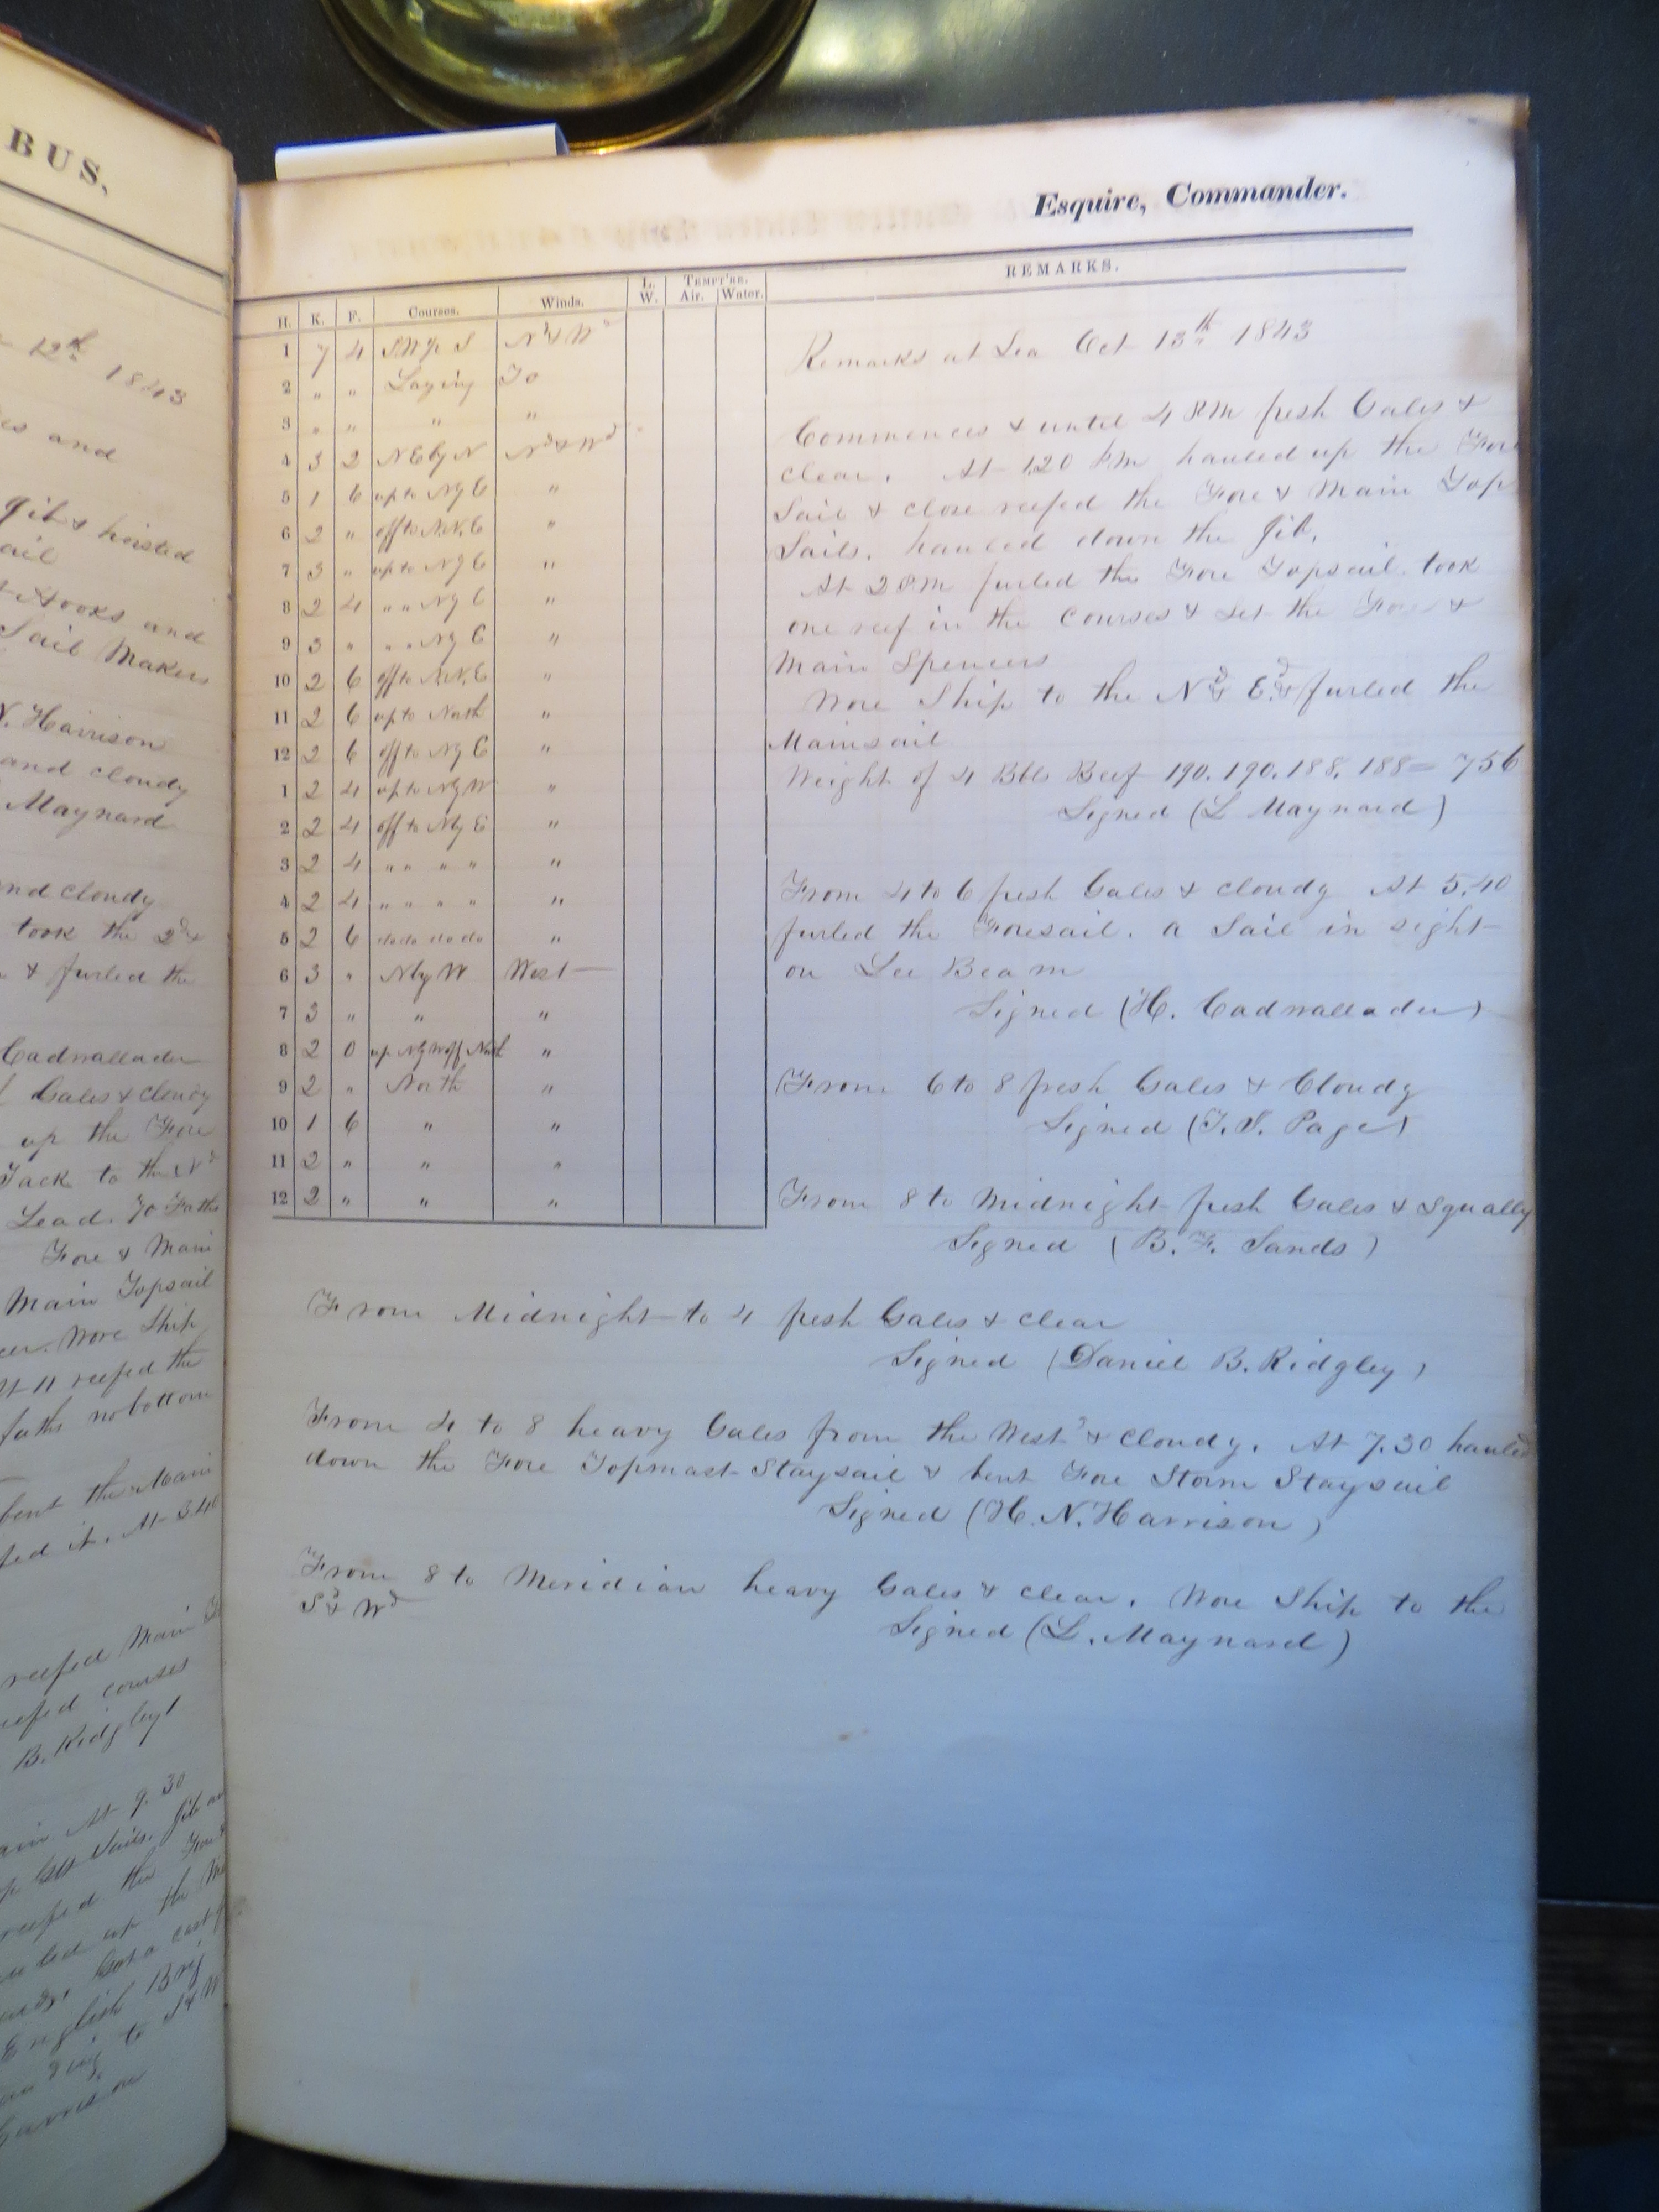 BUS,
12th 1843
es and
Jib & hoisted
ail
Hooks and
Sail Makers
N. Harrison
and cloudy
Maynard
nd cloudy
took the 2d &
& furled the
Cadwallader
Gales & cloudy
up the Fore
Tack to the Nd
Lead. 70 Faths
Fore & Main
Main Topsail
Wore Ship
At 11 reefed the
faths no bottom
bent the Main
ted it. At 3.40
reefed Main
reefed courses
B. Ridgley)
ain At 9.30
Sails. Jib an
reefed the Fore &
up the Ma
Got a cast of
English Brig
to Sd W
Esquire, Commander.
H. K. F. Courses. Winds. L. W. TEMPT'RE. Air. Water. REMARKS.
1 7 4 SW by S Nd & Wd
2 " " Laying To
3 " " " "
4 3 2 NE by N Nd & Wd
5 1 6 up to N by E "
6 2 " off to N.N.E "
7 3 " up to N by E "
8 2 4 " " N by E "
9 3 " " " N by E "
10 2 6 off to N.N.E "
11 2 6 up to North "
12 2 6 off to N by E "
1 2 4 up to N by W "
2 2 4 off to N by E "
3 2 4 " " " " "
4 2 4 " " " " "
5 2 6 do do do do "
6 3 " N by W West
7 3 " " "
8 2 0 up N by W off North "
9 2 " North "
10 1 6 " "
11 2 " " "
12 2 " " "
Remarks at Sea Oct 13th 1843
Commences & until 4 PM fresh Gales &
clear. At 1.20 PM hauled up the Fore
Sail & close reefed the Fore & Main Top
Sails. hauled down the Jib.
At 2 PM furled the Fore Topsail. took
one reef in the Courses & set the Fore &
Main Spencers
Wore Ship to the Nd & Ed & furled the
Mainsail
Weight of 4 Bbls Beef 190. 190. 188. 188 = 756
Signed (L Maynard)
From 4 to 6 fresh Gales & cloudy At 5.40
furled the Foresail. a Sail in sight
on Lee Beam
Signed (H. Cadwallader)
From 6 to 8 fresh Gales & Cloudy
Signed (T. S. Page)
From 8 to Midnight fresh Gales & Squally
Signed (B. F. Sands)
From Midnight to 4 fresh Gales & clear
Signed (Daniel B. Ridgley)
From 4 to 8 heavy Gales from the Westd & cloudy. At 7.30 hauled
down the Fore Topmast Staysail & bent Fore Storm Staysail
Signed (H. N. Harrison)
From 8 to Meridian heavy Gales & clear. Wore Ship to the
Sd & Wd
Signed (L. Maynard)